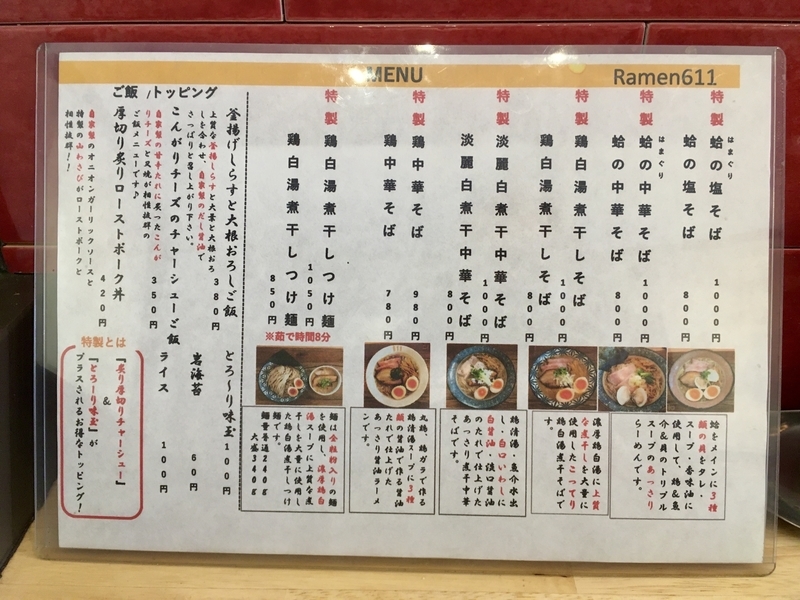 MENU
Ramen611
特製 蛤の塩そば 1000円
はまぐり
蛤の塩そば 800円
特製 蛤の中華そば 1000円
はまぐり
蛤の中華そば 800円
特製 鶏白湯煮干しそば 1000円
鶏白湯煮干しそば 800円
特製 淡麗白煮干中華そば 1000円
淡麗白煮干中華そば 800円
特製 鶏中華そば 980円
鶏中華そば 780円
特製 鶏白湯煮干しつけ麺 1050円
鶏白湯煮干しつけ麺 850円
※茹で時間8分
蛤をメインに3種
類の貝をタレ・
スープ・香味油に
使用して、鶏&魚
介&貝のトリプル
スープのあっさり
らーめんです。
濃厚鶏白湯に上質
な煮干しを大量に
使用したこってり
鶏白湯煮干しそば
です。
鶏清湯・魚介水出
し・白口いわしに
白醤油・淡口醤油
のたれで仕上げた
あっさり煮干中華
そばです。
丸鶏、鶏ガラで作る
鶏清湯スープに3種
類の醤油で作る醤油
たれで仕上げた
あっさり醤油ラーメ
ンです。
麺は全粒粉入りの麺
を使用し、濃厚鶏白
湯スープに上質な煮
干しを大量に使用し
た鶏白湯煮干しつけ
麺です。
麺量普通240g
大盛340g
ご飯 /トッピング
釜揚げしらすと大根おろしご飯
380円
上質な釜揚しらすと大葉と大根おろ
しを合わせ、自家製のだし醤油で
さっぱりと召し上がり下さい。
こんがりチーズのチャーシューご飯
350円
自家製の甘辛たれに炙ったこんが
りチーズと叉焼が相性抜群の
ご飯メニューです♪
厚切り炙りローストポーク丼
420円
自家製のオニオンガーリックソースと
特製の山わさびがローストポークと
相性抜群!!
とろ〜り味玉 100円
岩海苔 60円
ライス 100円
特製とは
『炙り厚切りチャーシュー』
&
『とろ〜り味玉』が
プラスされるお得なトッピング!